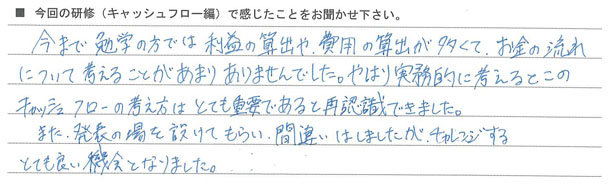 ■ 今回の研修（キャッシュフロー編）で感じたことをお聞かせ下さい。
今まで勉学の方では利益の算出や、費用の算出が多くて、お金の流れ
について考えることがあまりありませんでした。やはり実務的に考えるとこの
キャッシュフローの考え方はとても重要であると再認識できました。
また、発表の場を設けてもらい、間違いはしましたが、チャレンジする
とても良い機会となりました。